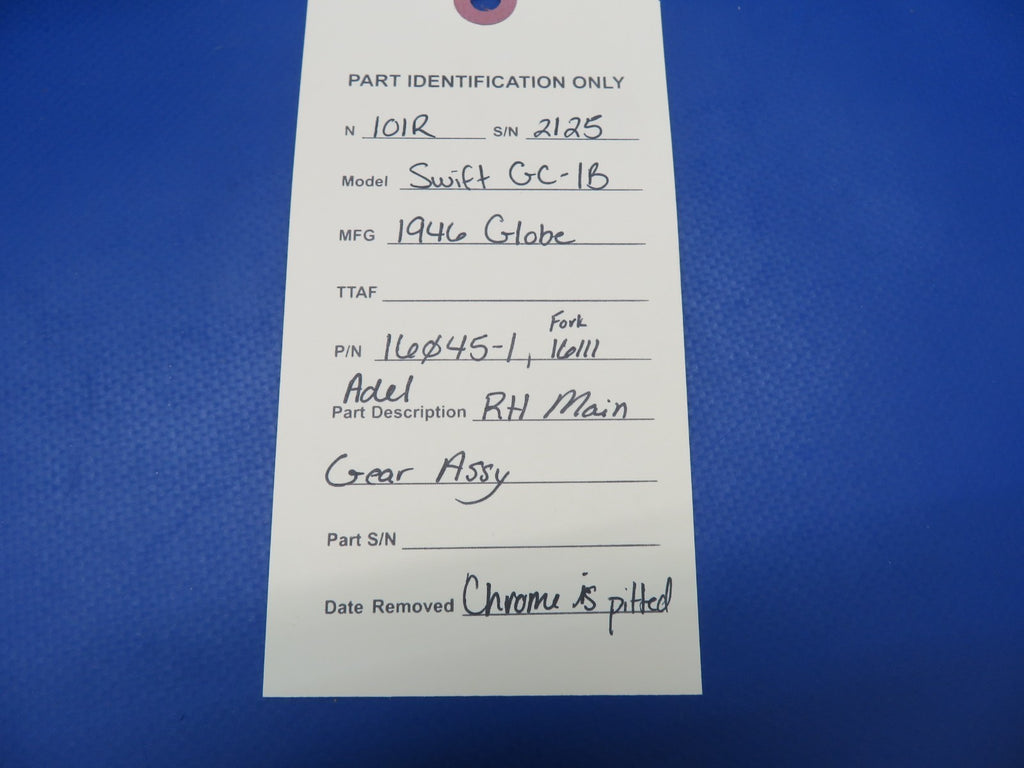 PART IDENTIFICATION ONLY
N 101R S/N 2125
Model Swift GC-1B
MFG 1946 Globe
TTAF
Fork
P/N 16Ø45-1, 16111
Adel
Part Description RH Main
Gear Assy
Part S/N
Date Removed Chrome is pitted